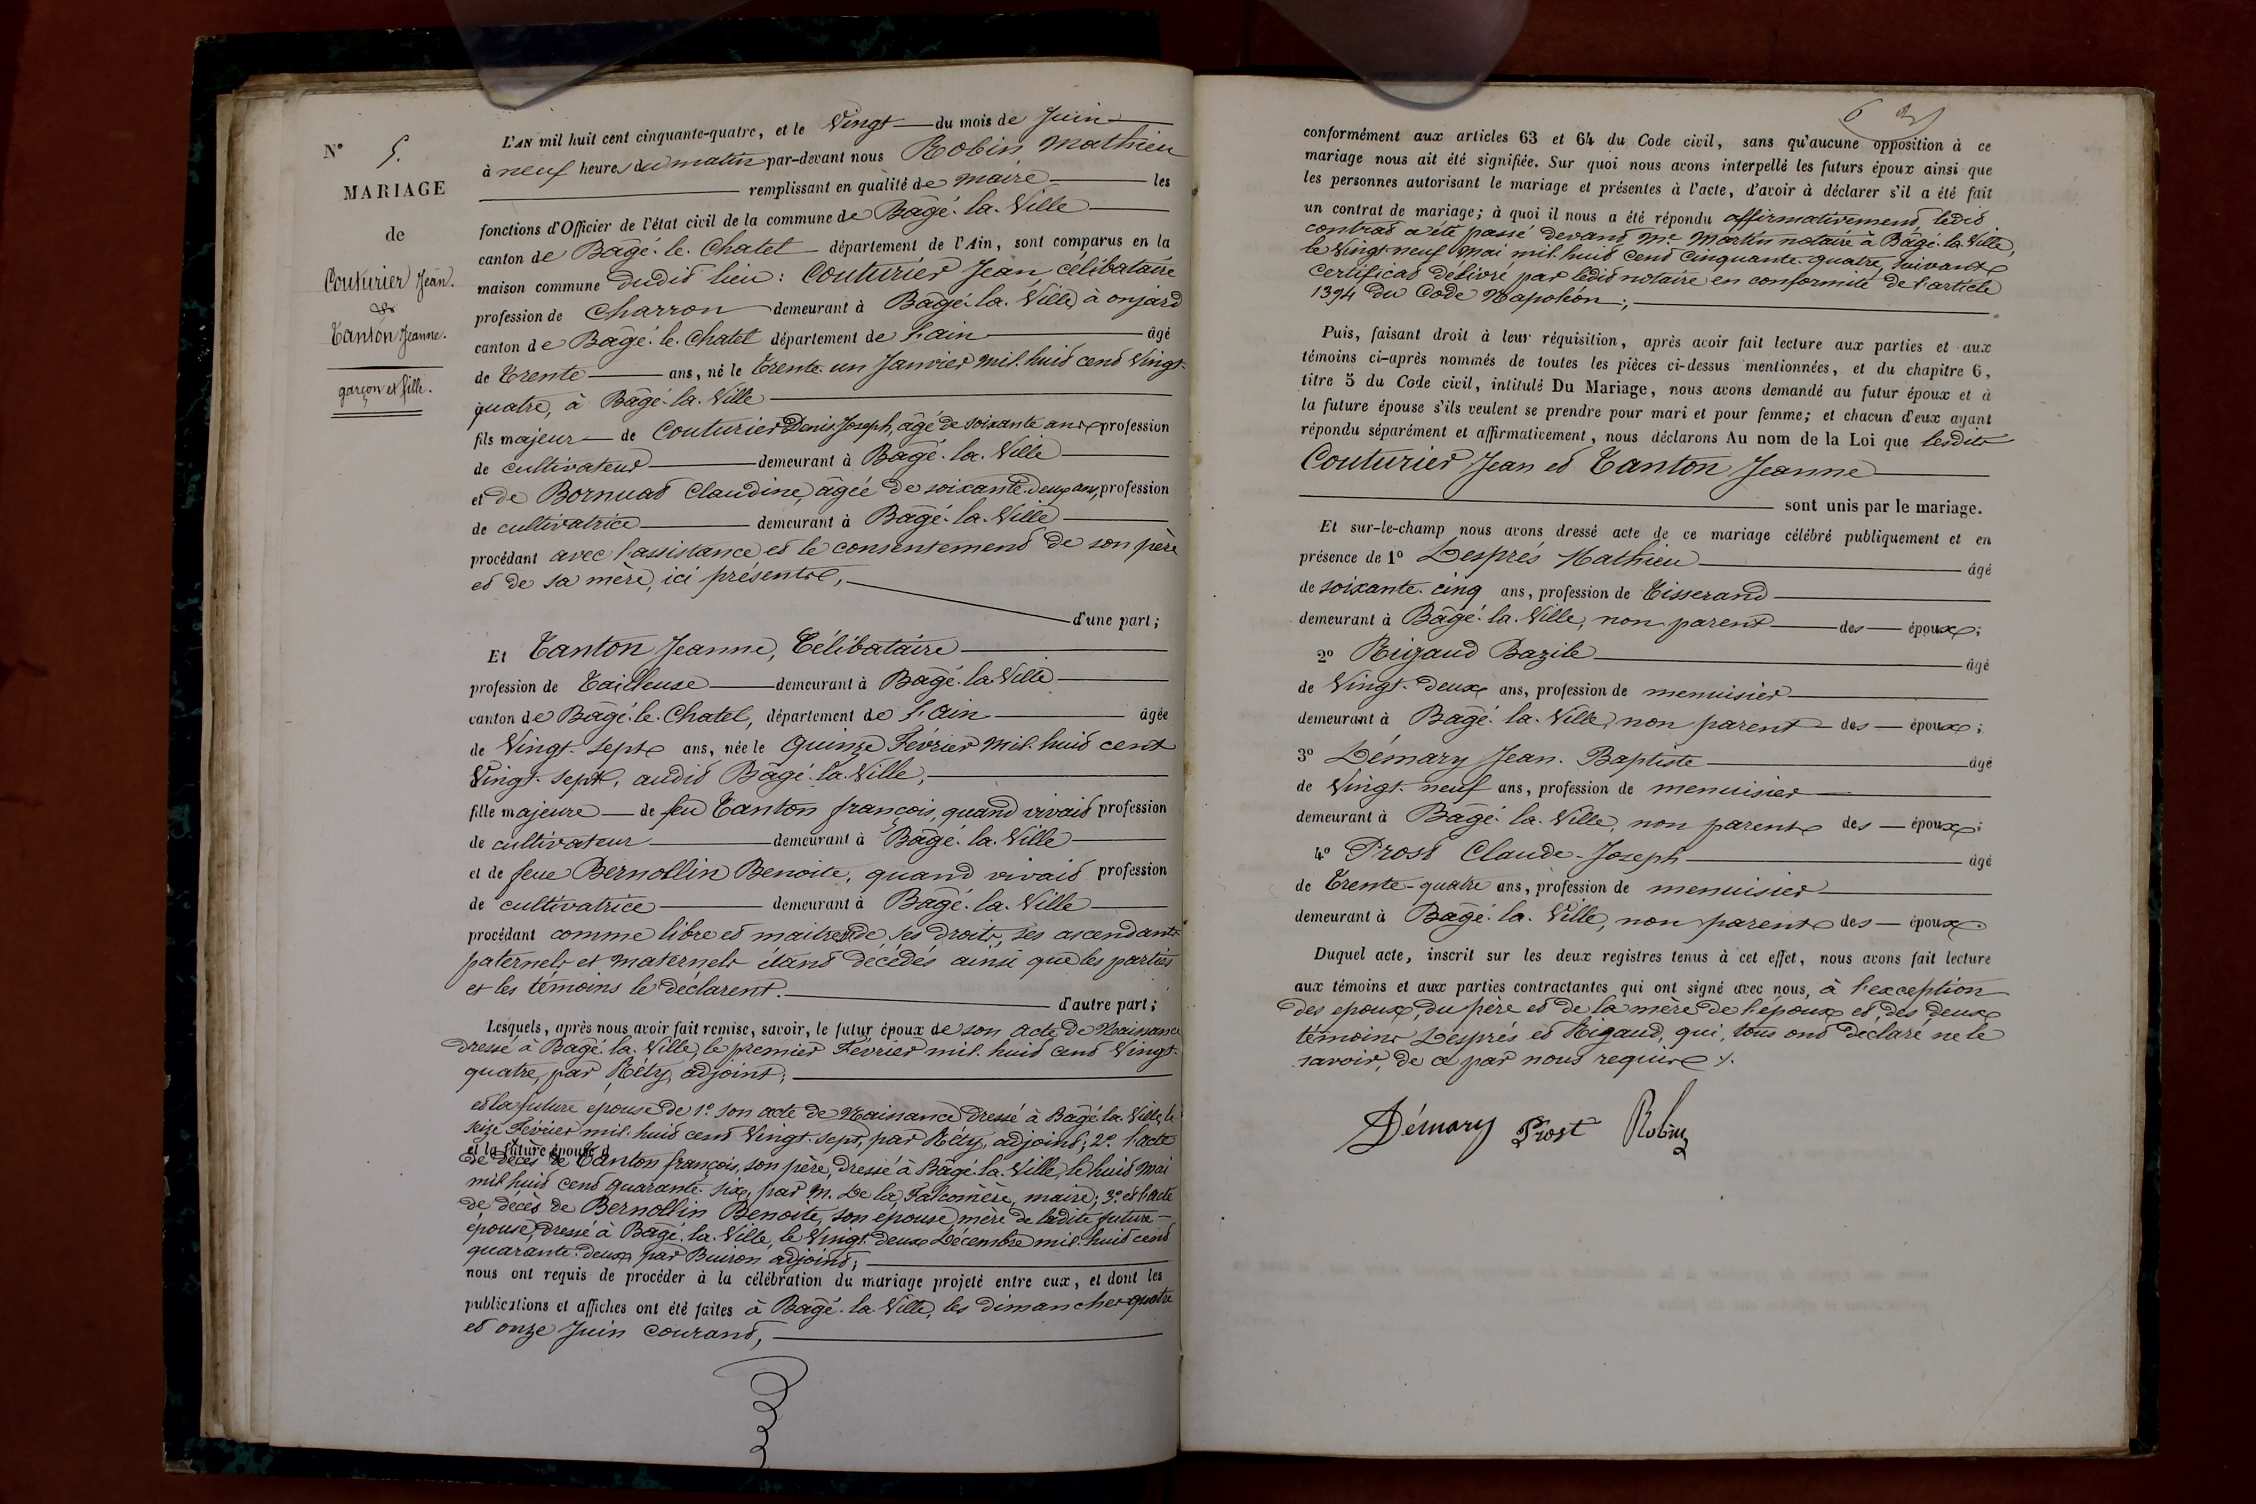 N° 5.
MARIAGE
de
Couturier Jean.
&
Tanton Jeanne.
garçon et fille.
L'AN mil huit cent cinquante-quatre, et le Vingt du mois de Juin
à neuf heures du matin par-devant nous Robin Mathieu
remplissant en qualité de maire les
fonctions d'Officier de l'état civil de la commune de Bâgé-la-Ville
canton de Bâgé-le-Chatel département de l'Ain, sont comparus en la
maison commune dudit lieu : Couturier Jean célibataire
profession de Charron demeurant à Bâgé-la-Ville, à onjard
canton de Bâgé-le-Chatel département de l'ain âgé
de Trente ans, né le Trente-un Janvier mil-huit cent Vingt-
quatre, à Bâgé-la-Ville
fils majeur de Couturier Denis Joseph, âgé de soixante ans profession
de cultivateur demeurant à Bâgé-la-Ville
et de Bornuat Claudine, âgée de soixante-deux ans, profession
de cultivatrice demeurant à Bâgé-la-Ville
procédant avec l'assistance et le consentement de son père
et de sa mère, ici présents,
d'une part;
Et Tanton Jeanne, Célibataire
profession de Tailleuse demeurant à Bâgé-la-Ville
canton de Bâgé-le-Chatel, département de l'Ain âgée
de Vingt-sept ans, née le Quinze Février mil-huit cent
Vingt-sept, audit Bâgé-la-Ville,
fille majeure de feu Tanton françois, quand vivait profession
de cultivateur demeurant à Bâgé-la-Ville
et de feue Bernollin Benoite, quand vivait profession
de cultivatrice demeurant à Bâgé-la-Ville
procédant comme libre et maitresse de ses droits, ses ascendants
paternels et maternels étant décédés ainsi que les parties
et les témoins le déclarent.
d'autre part;
Lesquels, après nous avoir fait remise, savoir, le futur époux de son acte de Naissance
dressé à Bâgé-la-Ville, le premier Février mil-huit cent Vingt-
quatre, par Réty, adjoint;
et la future epouse de 1° son acte de Naissance dressé à Bâgé-la-Ville, le
seize Février mil-huit cent Vingt-sept, par Réty, adjoint; 2° l'acte
et la future épouse d
de décès de Tanton françois, son père, dressé à Bâgé-la-Ville, le huit Mai
mil huit cent quarante-six, par M. De la Falconière, maire; 3° et l'acte
de décès de Bernollin Benoite, son épouse, mère de ladite future
épouse, dressé à Bâgé-la-Ville, le Vingt-deux Décembre mil-huit cent
quarante-deux par Buiron adjoint;
nous ont requis de procéder à la célébration du mariage projeté entre eux, et dont les
publications et affiches ont été faites à Bâgé-la-Ville, les dimanches quatre
et onze Juin courant,
6
conformément aux articles 63 et 64 du Code civil, sans qu'aucune opposition à ce
mariage nous ait été signifiée. Sur quoi nous avons interpellé les futurs époux ainsi que
les personnes autorisant le mariage et présentes à l'acte, d'avoir à déclarer s'il a été fait
un contrat de mariage; à quoi il nous a été répondu affirmativement, ledit
contrat a été passé devant Me Martin notaire à Bâgé-la-Ville,
le Vingt-neuf Mai mil-huit cent cinquante-quatre, suivant
certificat délivré par ledit notaire en conformité de l'article
1394 du Code Napoléon;
Puis, faisant droit à leur réquisition, après avoir fait lecture aux parties et aux
témoins ci-après nommés de toutes les pièces ci-dessus mentionnées, et du chapitre 6,
titre 5 du Code civil, intitulé Du Mariage, nous avons demandé au futur époux et à
la future épouse s'ils veulent se prendre pour mari et pour femme; et chacun d'eux ayant
répondu séparément et affirmativement, nous déclarons Au nom de la Loi que lesdits
Couturier Jean et Tanton Jeanne
sont unis par le mariage.
Et sur-le-champ nous avons dressé acte de ce mariage célébré publiquement et en
présence de 1° Desprès Mathieu âgé
de soixante-cinq ans, profession de Tisserand
demeurant à Bâgé-la-Ville, non parent des époux;
2° Rigaud Bazile âgé
de Vingt-deux ans, profession de menuisier
demeurant à Bâgé-la-Ville, non parent des époux;
3° Démary Jean-Baptiste âgé
de Vingt-neuf ans, profession de menuisier
demeurant à Bâgé-la-Ville, non parent des époux;
4° Prost Claude-Joseph âgé
de Trente-quatre ans, profession de menuisier
demeurant à Bâgé-la-Ville, non parent des époux.
Duquel acte, inscrit sur les deux registres tenus à cet effet, nous avons fait lecture
aux témoins et aux parties contractantes qui ont signé avec nous, à l'exception
des epoux, du père et de la mère de l'époux et des deux
témoins Desprès et Rigaud, qui, tous ont déclaré ne le
savoir, de ce par nous requis.
Démary Prost Robin